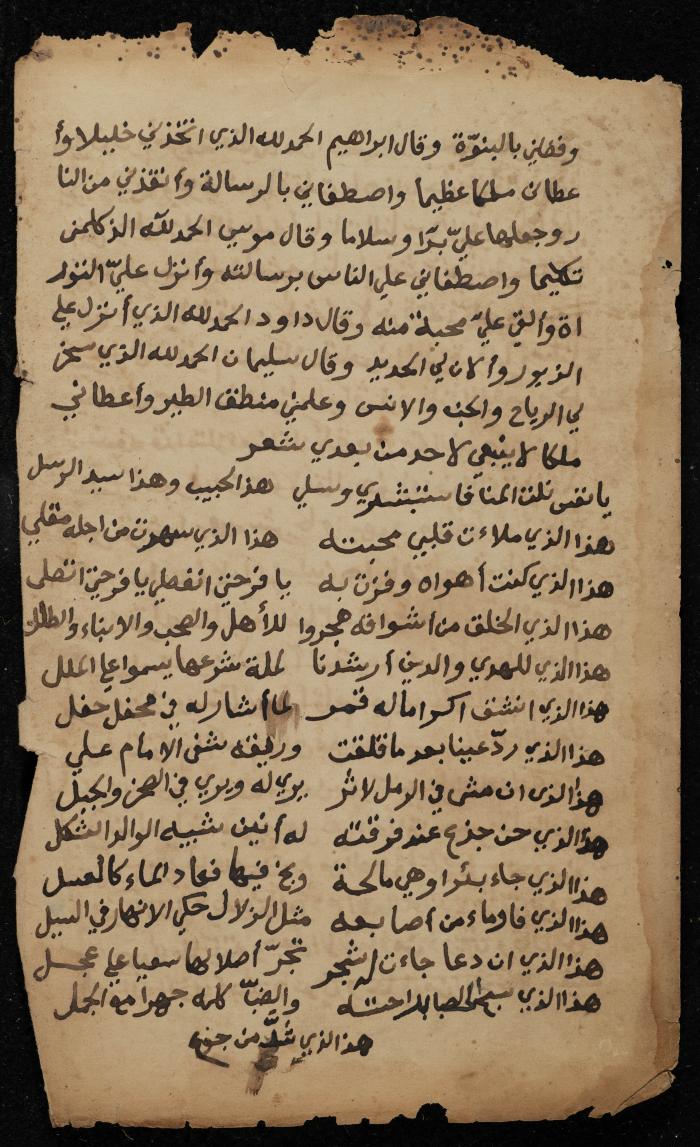 وفضلني بالنبوّة وقال ابراهيم الحمد لله الذي اتخذني خليلا وأ
عطاني ملكا عظيما واصطفاني بالرسالة وأنقذني من النا
ر وجعلها عليّ بردا وسلاما وقال موسي الحمد لله الذ كلمني
تكليما واصطفاني علي الناس برسالته وأنزل عليّ التور
اة وألقي عليّ محبة منه وقال داود الحمد لله الذي أنزل علي
الزبور وألان لي الحديد وقال سليمان الحمد لله الذي سخر
لي الرياح والجن والانس وعلمني منطق الطير وأعطاني
ملكا لا ينبغي لاحد من بعدي شعر
يا نفس نلت المنا فاستبشري وسلي هذ الحبيب وهذا سيد الرسل
هذا الذي ملاءت قلبي محبته هذا الذي سهرت من اجله مقلي
هذا الذي كنت أهواه وفزت به يا فرحتي اتصلي
هذا الذي الخلق من أشواقه هجروا للأهل والصحب والابناء والطلل
هذا الذي للهدي والدين أرشدنا لملة شرعها يسموا علي الملل
هذا الذي انشق اكراما له قمر لما أشار له في محفل حفل
هذا الذي ردّ عينا بعد ما قلعت وريقه شفي الامام علي
هذا الذي ان مشي في الرمل لا أثر يري له ويري في الصخر والجبل
هذ الذي حن جذع عند فرقته له أنين شبيه الوالد الثكل
هذا الذي جاء بئرا وهي مالحة ومج فيها فعاد الماء كالعسل
هذا الذي فار ماء من أصابعه مثل الزلال حكي الانهار في السيل
هذا الذي ان دعا جاءت له شجر تجرّ أصلا لها سعيا علي عجل
هذا الذي سبح الحصا براحته والضبّ كلمه جهرا مع الجمل
هذ الذي من جوع